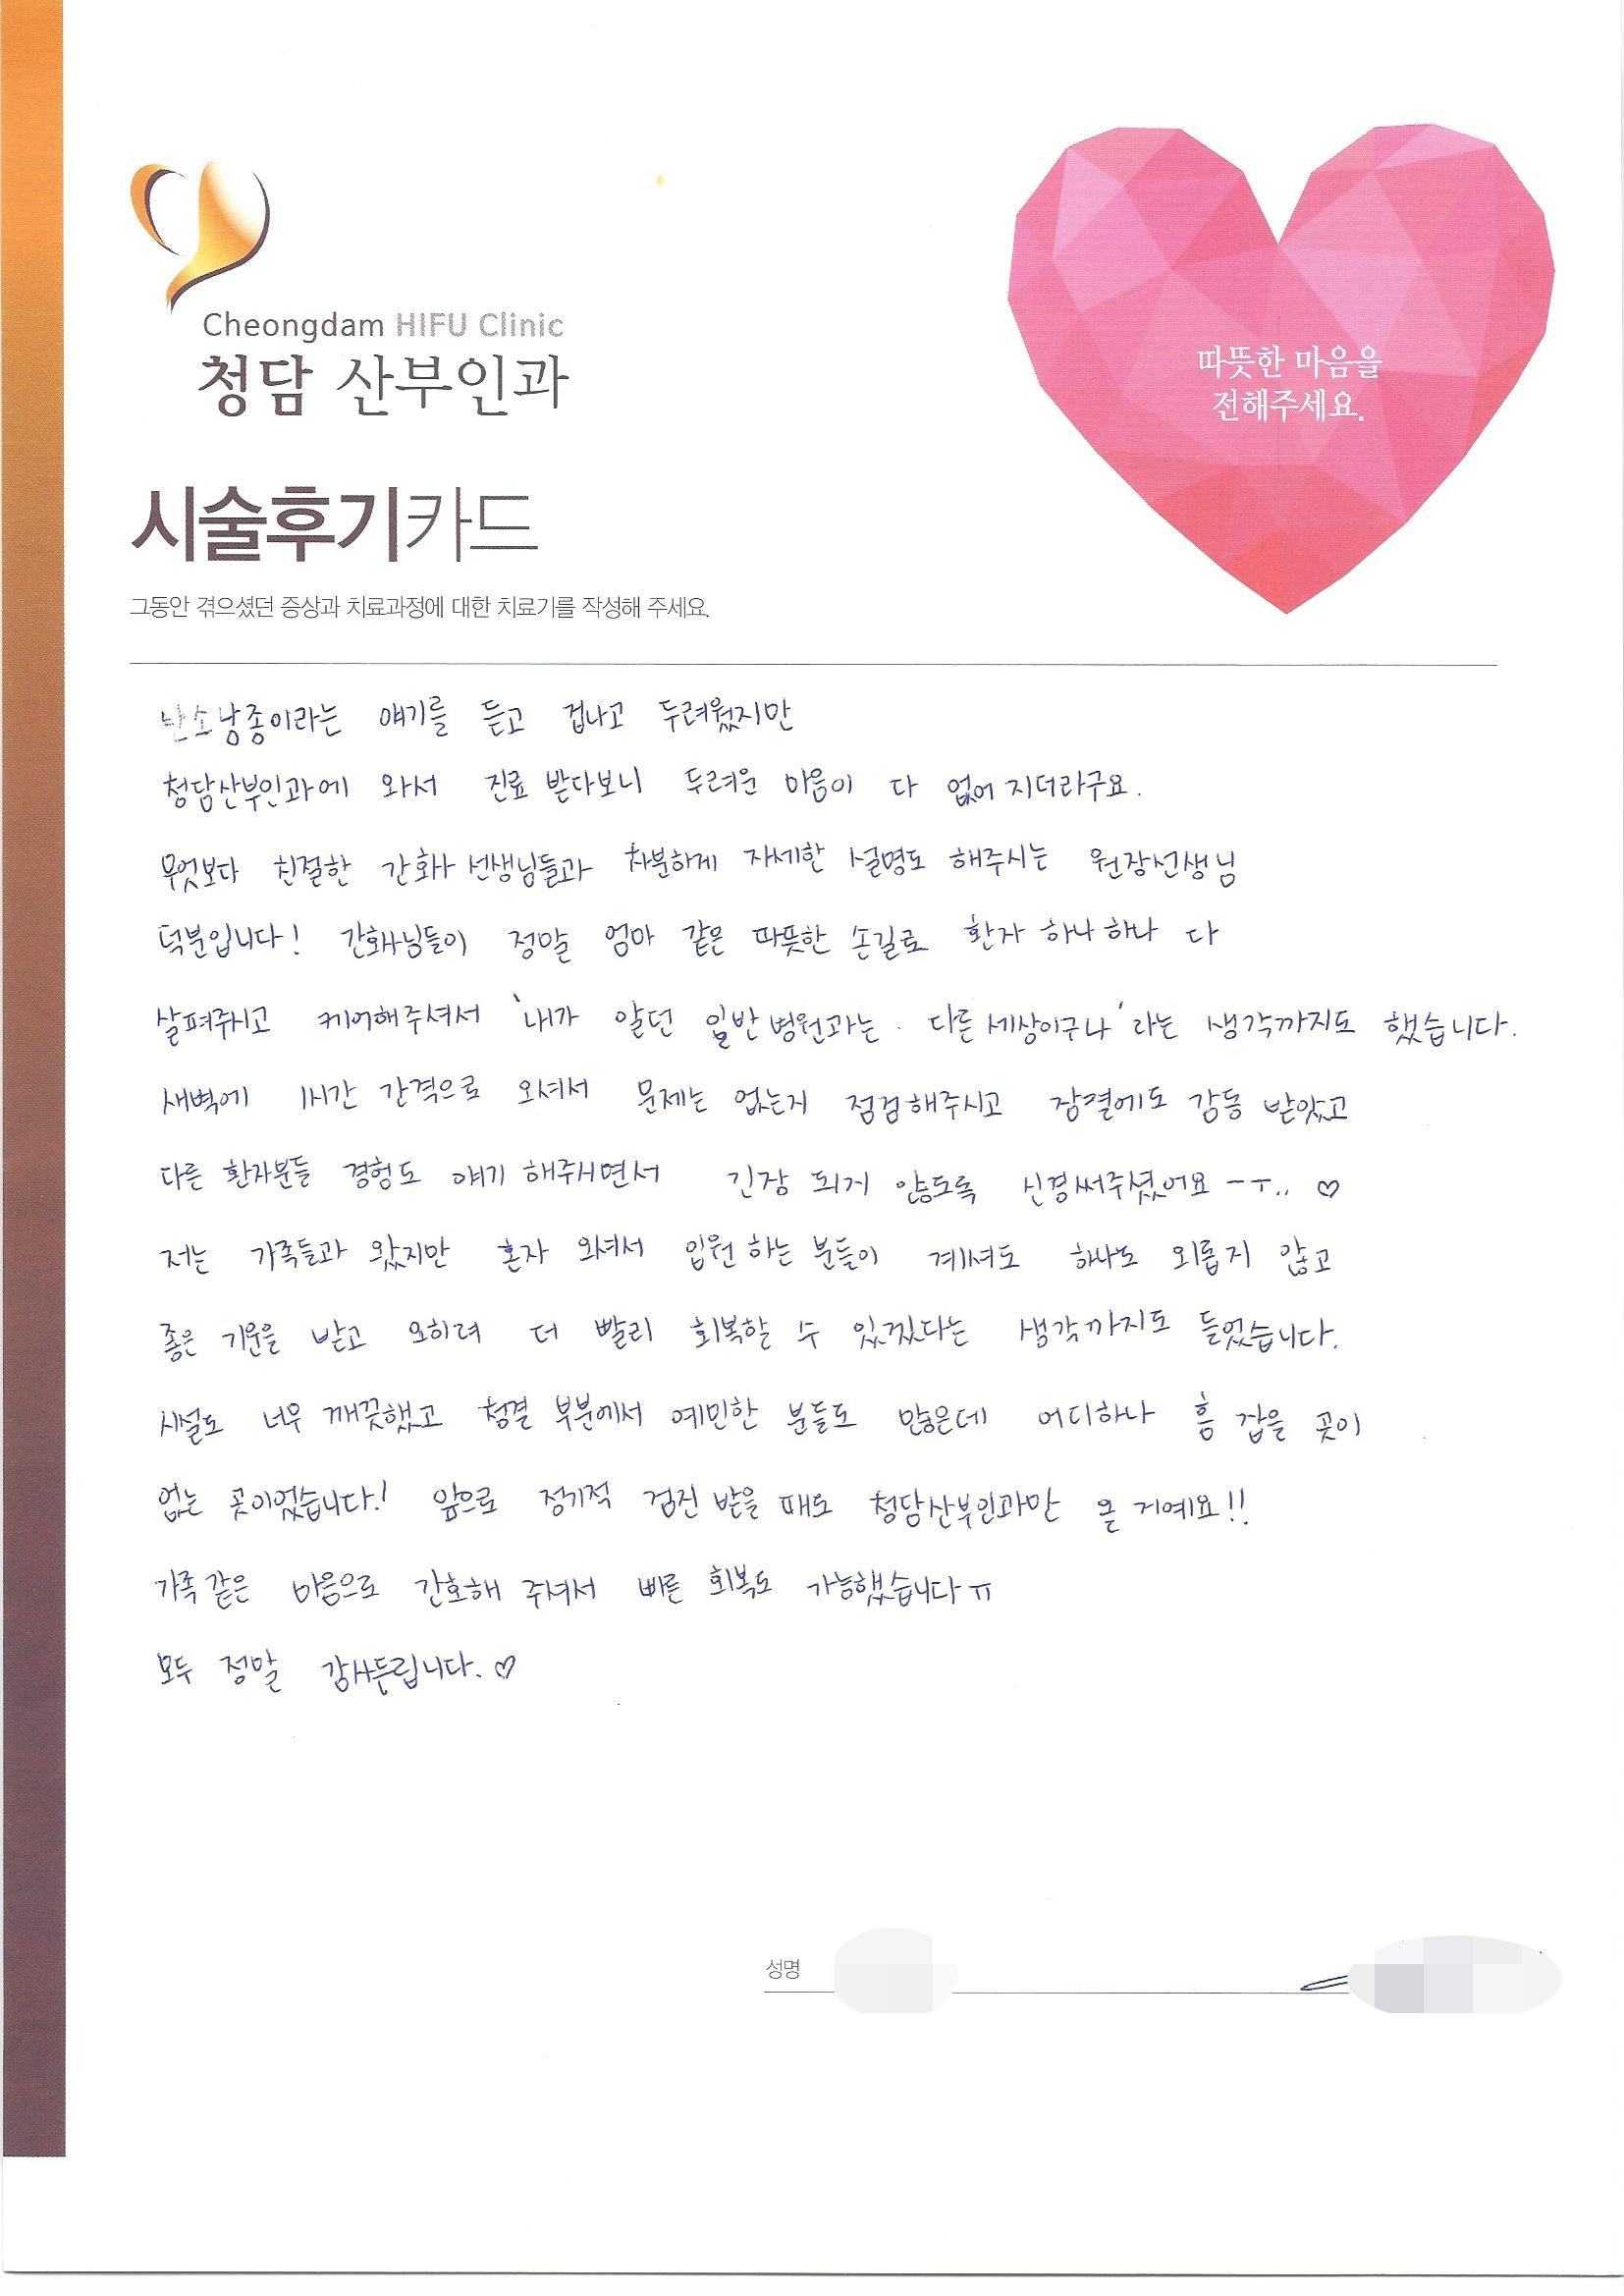 Cheongdam HIFU Clinic
청담 산부인과
따뜻한 마음을
전해주세요.
시술후기카드
그동안 겪으셨던 증상과 치료과정에 대한 치료기를 작성해 주세요.
난소낭종이라는 얘기를 듣고 겁나고 두려웠지만
청담산부인과에 와서 진료 받다보니 두려운 마음이 다 없어 지더라구요.
무엇보다 친절한 간호사 선생님들과 차분하게 자세한 설명도 해주시는 원장선생님
덕분입니다! 간호사님들이 정말 엄마 같은 따뜻한 손길로 환자 하나 하나 다
살펴주시고 케어해주셔서 '내가 알던 일반 병원과는 다른 세상이구나'라는 생각까지도 했습니다.
새벽에 1시간 간격으로 오셔서 문제는 없는지 점검해주시고 감동 받았고
다른 환자분들 경험도 얘기 해주시면서 긴장 되지 않도록 신경써주셨어요 ㅡㅜ.. ♡
저는 가족들과 왔지만 혼자 오셔서 입원 하는 분들이 계셔도 하나도 외롭지 않고
좋은 기운을 받고 오히려 더 빨리 회복할 수 있겠다는 생각까지도 들었습니다.
시설도 너무 깨끗했고 청결 부분에서 예민한 분들도 많은데 어디하나 흠 잡을 곳이
없는 곳이었습니다! 앞으로 정기적 검진 받을 때도 청담산부인과만 올 거예요!!
가족 같은 마음으로 간호해 주셔서 빠른 회복도 가능했습니다 ㅠ
모두 정말 감사드립니다. ♡
성명